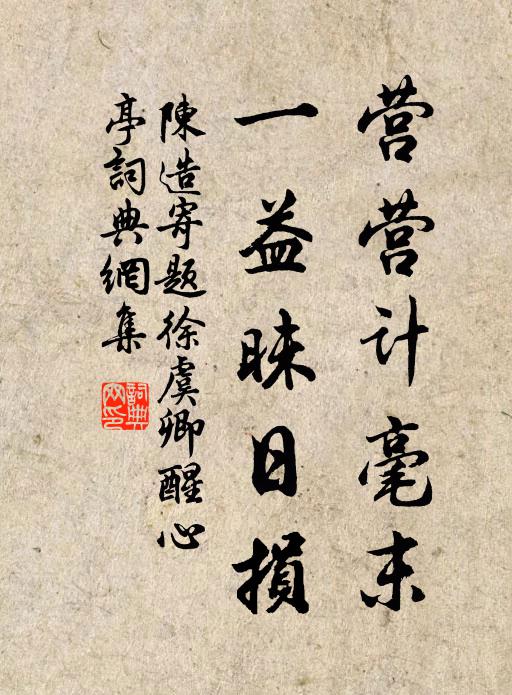 营营计毫末
一益昧日損
陳造寄題徐虞卿醒心
亭詞典網集
詞典网印